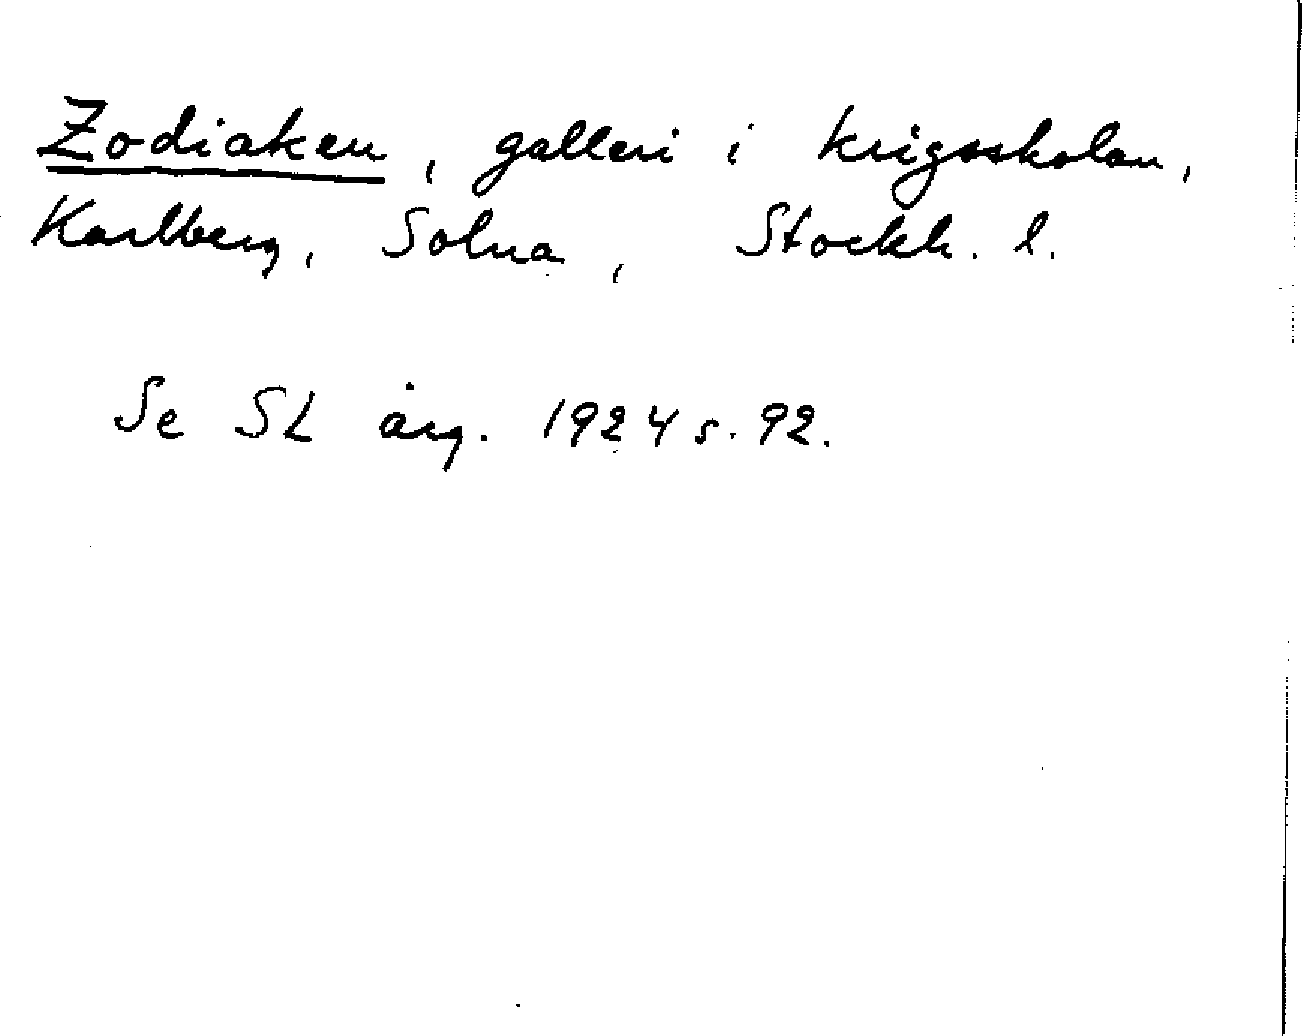 Zodiaken, galleri i krigsskolan,
Karlberg, Solna, Stockh. l.
Se SL årg. 1924 s. 92.